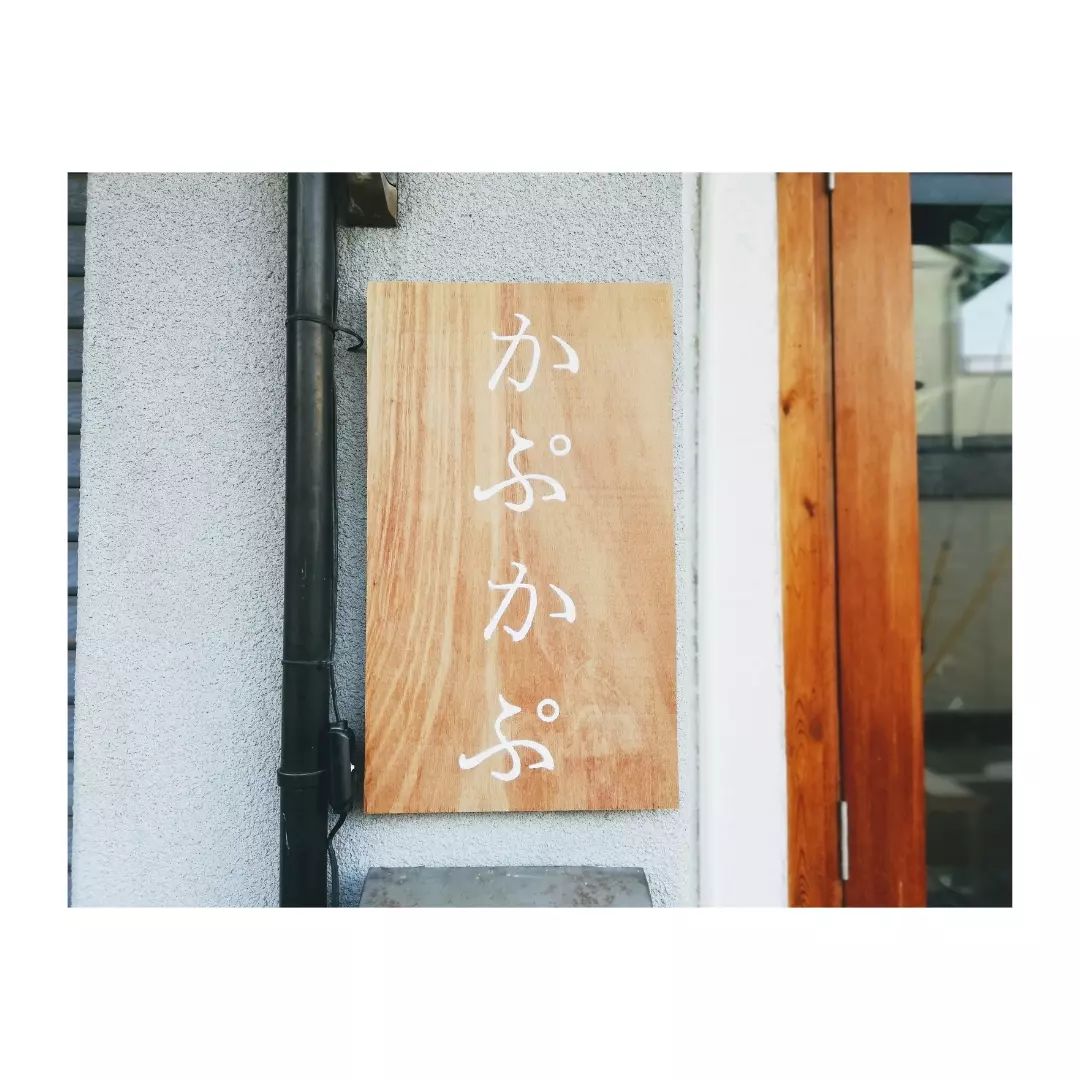 かぷかぷ